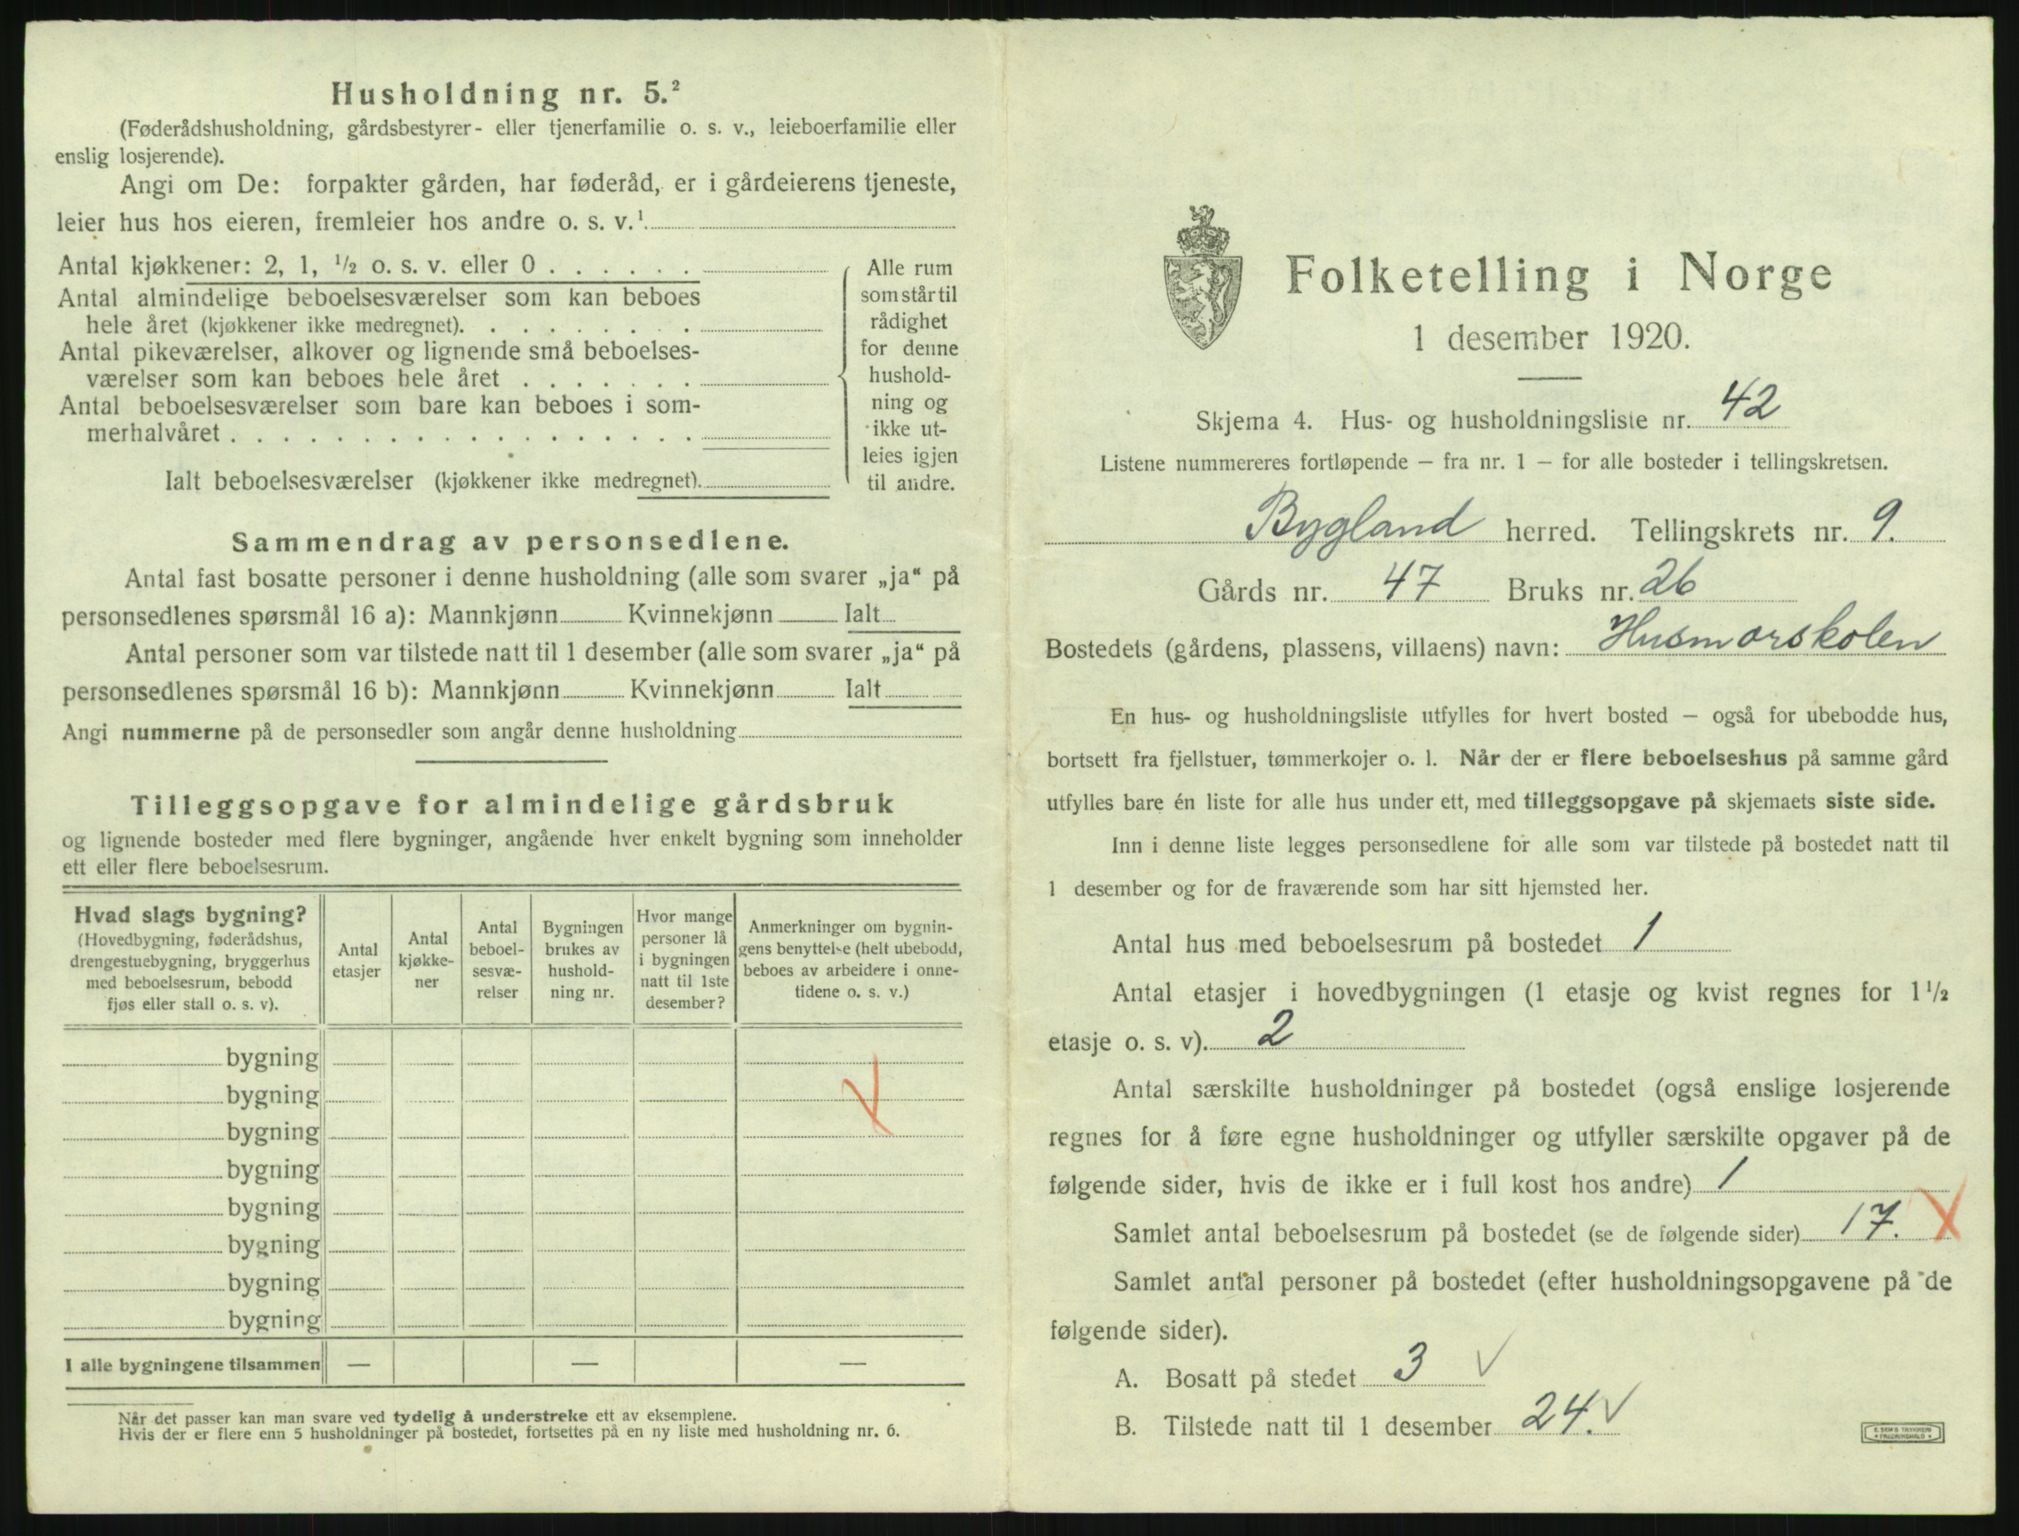 Husholdning nr. 5.²
(Føderådshusholdning, gårdsbestyrer- eller tjenerfamilie o. s. v., leieboerfamilie eller
enslig losjerende).
Angi om De: forpakter gården, har føderåd, er i gårdeierens tjeneste,
leier hus hos eieren, fremleier hos andre o. s. v.¹
Antal kjøkkener: 2, 1, ½ o. s. v. eller 0 . . . . . .
Antal almindelige beboelsesværelser som kan beboes
hele året (kjøkkener ikke medregnet). . . . . . . . .
Antal pikeværelser, alkover og lignende små beboelses-
værelser som kan beboes hele året . . . . . . .
Antal beboelsesværelser som bare kan beboes i som-
merhalvåret . . . . . . . . . . . . . . . . . .
Ialt beboelsesværelser (kjøkkener ikke medregnet).
Alle rum
som står til
rådighet
for denne
hushold-
ning og
ikke ut-
leies igjen
til andre.
Sammendrag av personsedlene.
Antal fast bosatte personer i denne husholdning (alle som svarer „ja“ på
personsedlenes spørsmål 16 a): Mannkjønn Kvinnekjønn Ialt
Antal personer som var tilstede natt til 1 desember (alle som svarer „ja“ på
personsedlenes spørsmål 16 b): Mannkjønn Kvinnekjønn Ialt
Angi nummerne på de personsedler som angår denne husholdning
Tilleggsopgave for almindelige gårdsbruk
og lignende bosteder med flere bygninger, angående hver enkelt bygning som inneholder
ett eller flere beboelsesrum.
Hvad slags bygning?
(Hovedbygning, føderådshus,
drengestuebygning, bryggerhus
med beboelsesrum, bebodd
fjøs eller stall o. s. v).
Antal
etasjer
Antal
kjøkke-
ner
Antal
beboel-
sesvæ-
relser
Bygningen
brukes av
hushold-
ning nr.
Hvor mange
personer lå
i bygningen
natt til 1ste
desember?
Anmerkninger om bygnin-
gens benyttelse (helt ubebodd,
beboes av arbeidere i onne-
tidene o. s. v.)
bygning
bygning
bygning
bygning
bygning
bygning
bygning
bygning
I alle bygningene tilsammen — — —
Når det passer kan man svare ved tydelig å understreke ett av eksemplene.
Hvis der er flere enn 5 husholdninger på bostedet, fortsettes på en ny liste med husholdning nr. 6.
Folketelling i Norge
1 desember 1920.
Skjema 4. Hus- og husholdningsliste nr. 42
Listene nummereres fortløpende – fra nr. 1 – for alle bosteder i tellingskretsen.
Bygland herred. Tellingskrets nr. 9.
Gårds nr. 47 Bruks nr. 26
Bostedets (gårdens, plassens, villaens) navn: Husmorskolen
En hus- og husholdningsliste utfylles for hvert bosted – også for ubebodde hus,
bortsett fra fjellstuer, tømmerkojer o. l. Når der er flere beboelseshus på samme gård
utfylles bare én liste for alle hus under ett, med tilleggsopgave på skjemaets siste side.
Inn i denne liste legges personsedlene for alle som var tilstede på bostedet natt til
1 desember og for de fraværende som har sitt hjemsted her.
Antal hus med beboelsesrum på bostedet 1
Antal etasjer i hovedbygningen (1 etasje og kvist regnes for 1½
etasje o. s. v). 2
Antal særskilte husholdninger på bostedet (også enslige losjerende
regnes for å føre egne husholdninger og utfyller særskilte opgaver på de
følgende sider, hvis de ikke er i full kost hos andre) 1
Samlet antal beboelsesrum på bostedet (se de følgende sider) 17.
Samlet antal personer på bostedet (efter husholdningsopgavene på de
følgende sider).
A. Bosatt på stedet 3
B. Tilstede natt til 1 desember 24.